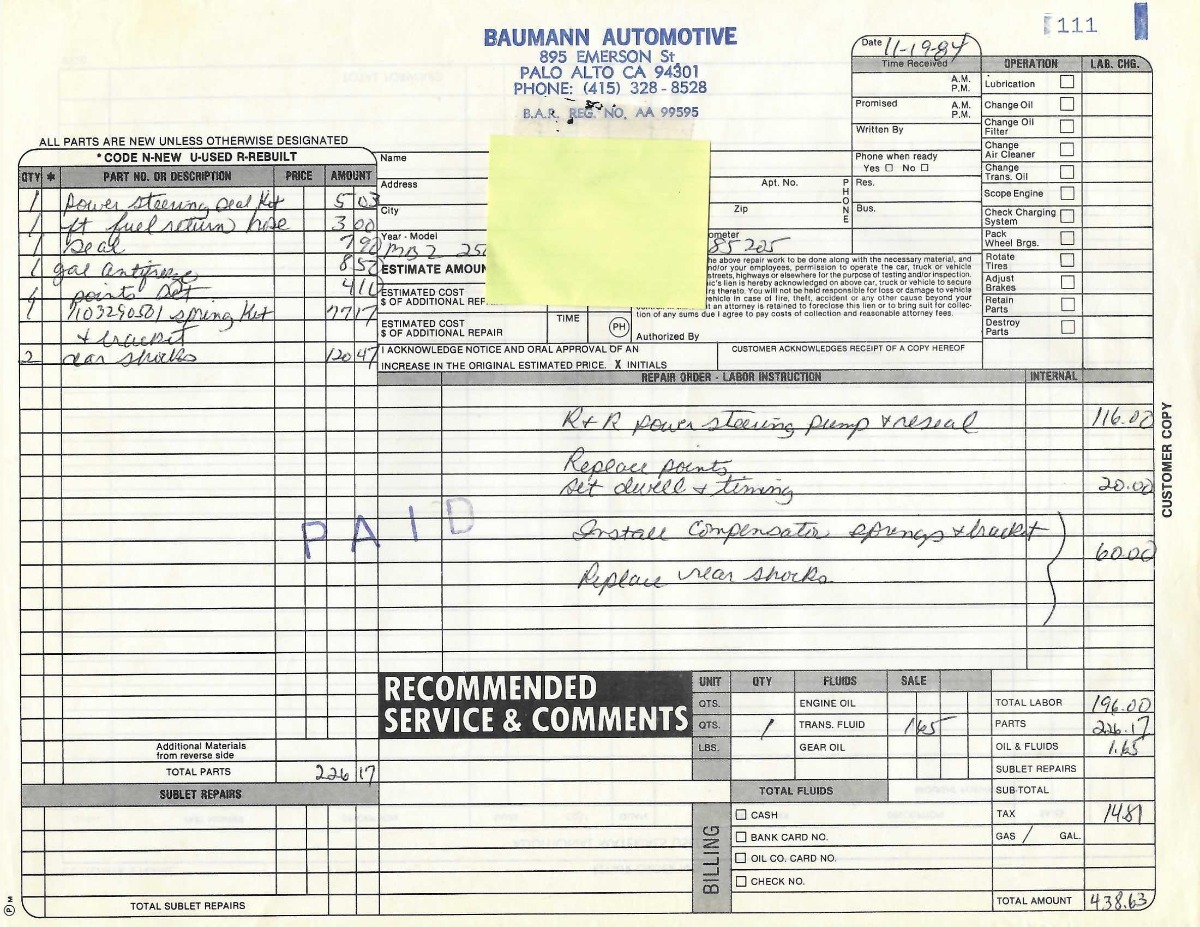 111
BAUMANN AUTOMOTIVE
895 EMERSON St.
PALO ALTO CA 94301
PHONE: (415) 328-8528
B.A.R. REG. NO. AA 99595
Date 11-19-84
Time Received
A.M.
P.M.
Promised A.M.
P.M.
Written By
Phone when ready
Yes ☐ No ☐
OPERATION LAB. CHG.
Lubrication ☐
Change Oil ☐
Change Oil Filter ☐
Change Air Cleaner ☐
Change Trans. Oil ☐
Scope Engine ☐
Check Charging System ☐
Pack Wheel Brgs. ☐
Rotate Tires ☐
Adjust Brakes ☐
Retain Parts ☐
Destroy Parts ☐
ALL PARTS ARE NEW UNLESS OTHERWISE DESIGNATED
* CODE N-NEW U-USED R-REBUILT
QTY * PART NO. OR DESCRIPTION PRICE AMOUNT
1 power steering seal kit 5 03
1 ft fuel return hose 3 00
1 seal 7 90
1 gal antifreeze 8 50
1 points set 4 10
1 1103290501 spring kit 77 17
& bracket
2 rear shocks 120 47
Name
Address
Apt. No.
City
Zip
PHONE
Res.
Bus.
Year - Model
MBZ 250
ometer
85205
ESTIMATE AMOUN
ESTIMATED COST
$ OF ADDITIONAL REP
ESTIMATED COST
$ OF ADDITIONAL REPAIR
TIME
PH
he above repair work to be done along with the necessary material, and
nd/or your employees, permission to operate the car, truck or vehicle
streets, highways or elsewhere for the purpose of testing and/or inspection.
ic's lien is hereby acknowledged on above car, truck or vehicle to secure
irs thereto. You will not be held responsible for loss or damage to vehicle
vehicle in case of fire, theft, accident or any other cause beyond your
t an attorney is retained to foreclose this lien or to bring suit for collec-
tion of any sums due I agree to pay costs of collection and reasonable attorney fees.
Authorized By
I ACKNOWLEDGE NOTICE AND ORAL APPROVAL OF AN
INCREASE IN THE ORIGINAL ESTIMATED PRICE. X INITIALS
CUSTOMER ACKNOWLEDGES RECEIPT OF A COPY HEREOF
REPAIR ORDER - LABOR INSTRUCTION INTERNAL
R+R power steering pump & reseal 116.00
Replace points
set dwell & timing 20.00
Install Compensator springs & bracket
60.00
Replace rear shocks
PAID
CUSTOMER COPY
RECOMMENDED
SERVICE & COMMENTS
UNIT QTY FLUIDS SALE
QTS. ENGINE OIL
QTS. 1 TRANS. FLUID 1.65
LBS. GEAR OIL
TOTAL FLUIDS
TOTAL LABOR 196.00
PARTS 226.17
OIL & FLUIDS 1.65
SUBLET REPAIRS
SUB-TOTAL
TAX 14.81
GAS / GAL.
TOTAL AMOUNT 438.63
Additional Materials
from reverse side
TOTAL PARTS 226 17
SUBLET REPAIRS
TOTAL SUBLET REPAIRS
BILLING
☐ CASH
☐ BANK CARD NO.
☐ OIL CO. CARD NO.
☐ CHECK NO.
P M